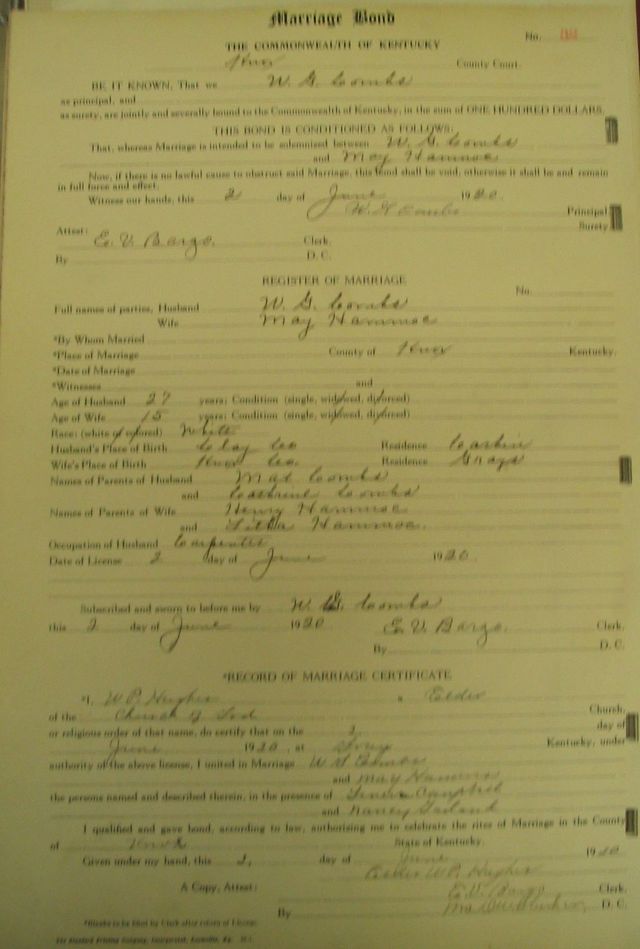 Marriage Bond
No.
THE COMMONWEALTH OF KENTUCKY
Knox County Court.
BE IT KNOWN, That we W. G. Combs
as principal, and
as surety, are jointly and severally bound to the Commonwealth of Kentucky, in the sum of ONE HUNDRED DOLLARS.
THIS BOND IS CONDITIONED AS FOLLOWS:
That, whereas Marriage is intended to be solemnized between W. G. Combs
and May Hammoc
Now, if there is no lawful cause to obstruct said Marriage, this bond shall be void, otherwise it shall be and remain
in full force and effect.
Witness our hands, this 2 day of June 1920.
W. G. Combs Principal
Surety
Attest:
E. V. Bargo. Clerk.
By D. C.
REGISTER OF MARRIAGE
No.
Full names of parties, Husband W. G. Combs
Wife May Hammoc
*By Whom Married
*Place of Marriage County of Knox Kentucky.
*Date of Marriage
*Witnesses and
Age of Husband 27 years; Condition (single, widowed, divorced)
Age of Wife 15 years; Condition (single, widowed, divorced)
Race: (white or colored) White
Husband's Place of Birth Clay Co Residence Corbin
Wife's Place of Birth Knox Co. Residence Grays
Names of Parents of Husband Mat Combs
and Catherine Combs
Names of Parents of Wife Henry Hammoc
and Hammoc.
Occupation of Husband Carpenter
Date of License 2 day of June 1920.
Subscribed and sworn to before me by W. G. Combs
this 2 day of June 1920 E. V. Bargo. Clerk.
By D. C.
*RECORD OF MARRIAGE CERTIFICATE
*I, W P. Hughes a Elder
of the Church of God Church,
or religious order of that name, do certify that on the 2 day of
June 1920, at Gray Kentucky, under
authority of the above license, I united in Marriage W G
and May
the persons named and described therein, in the presence of Campbell
and Nancy
I qualified and gave bond, according to law, authorising me to celebrate the rites of Marriage in the County
of Knox State of Kentucky.
Given under my hand, this 2, day of June 1920
Elder W P. Hughes
A Copy, Attest: E. V. Bargo Clerk.
By D. C.
*Blanks to be filled by Clerk after return of License.